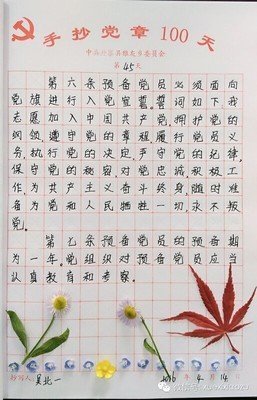 手抄党章100天
第45天
第六条预备党员必须面向
党旗进行入党宣誓。誓词如下：我
志愿加入中国共产党，拥护党的
纲领，遵守党的章程，履行党员义
务，执行党的决定，严守党的纪律，
保守党的秘密，对党忠诚，积极工
作，为共产主义奋斗终身，随时准
备为党和人民牺牲一切，永不叛
党。
第七条预备党员的预备期
为一年。党组织对预备党员应当
认真教育和考察。
抄写人 吴北一
2016年4月14日